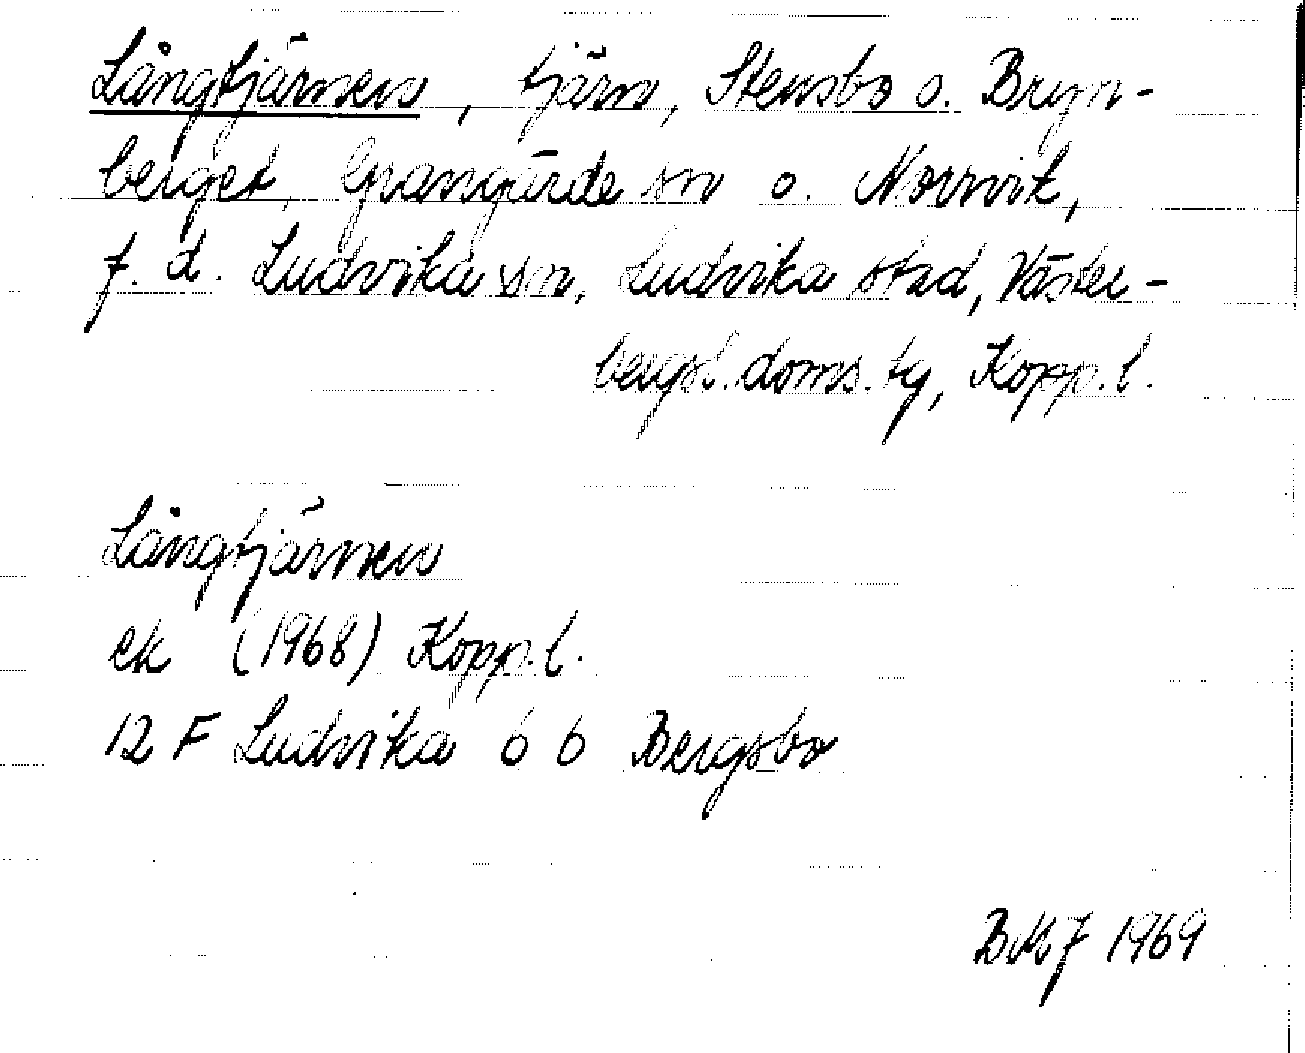 Långtjärnen, tjärn, Stensbo o. Bryn-
berget, Grangärde sn o. Norrvik,
f. d. Ludvika sn, Ludvika stad, Väster-
bergsl. doms. tg, Kopp. l.
Långtjärnen
ek (1968) Kopp. l.
12 F Ludvika 6 b Bergsbo
1969